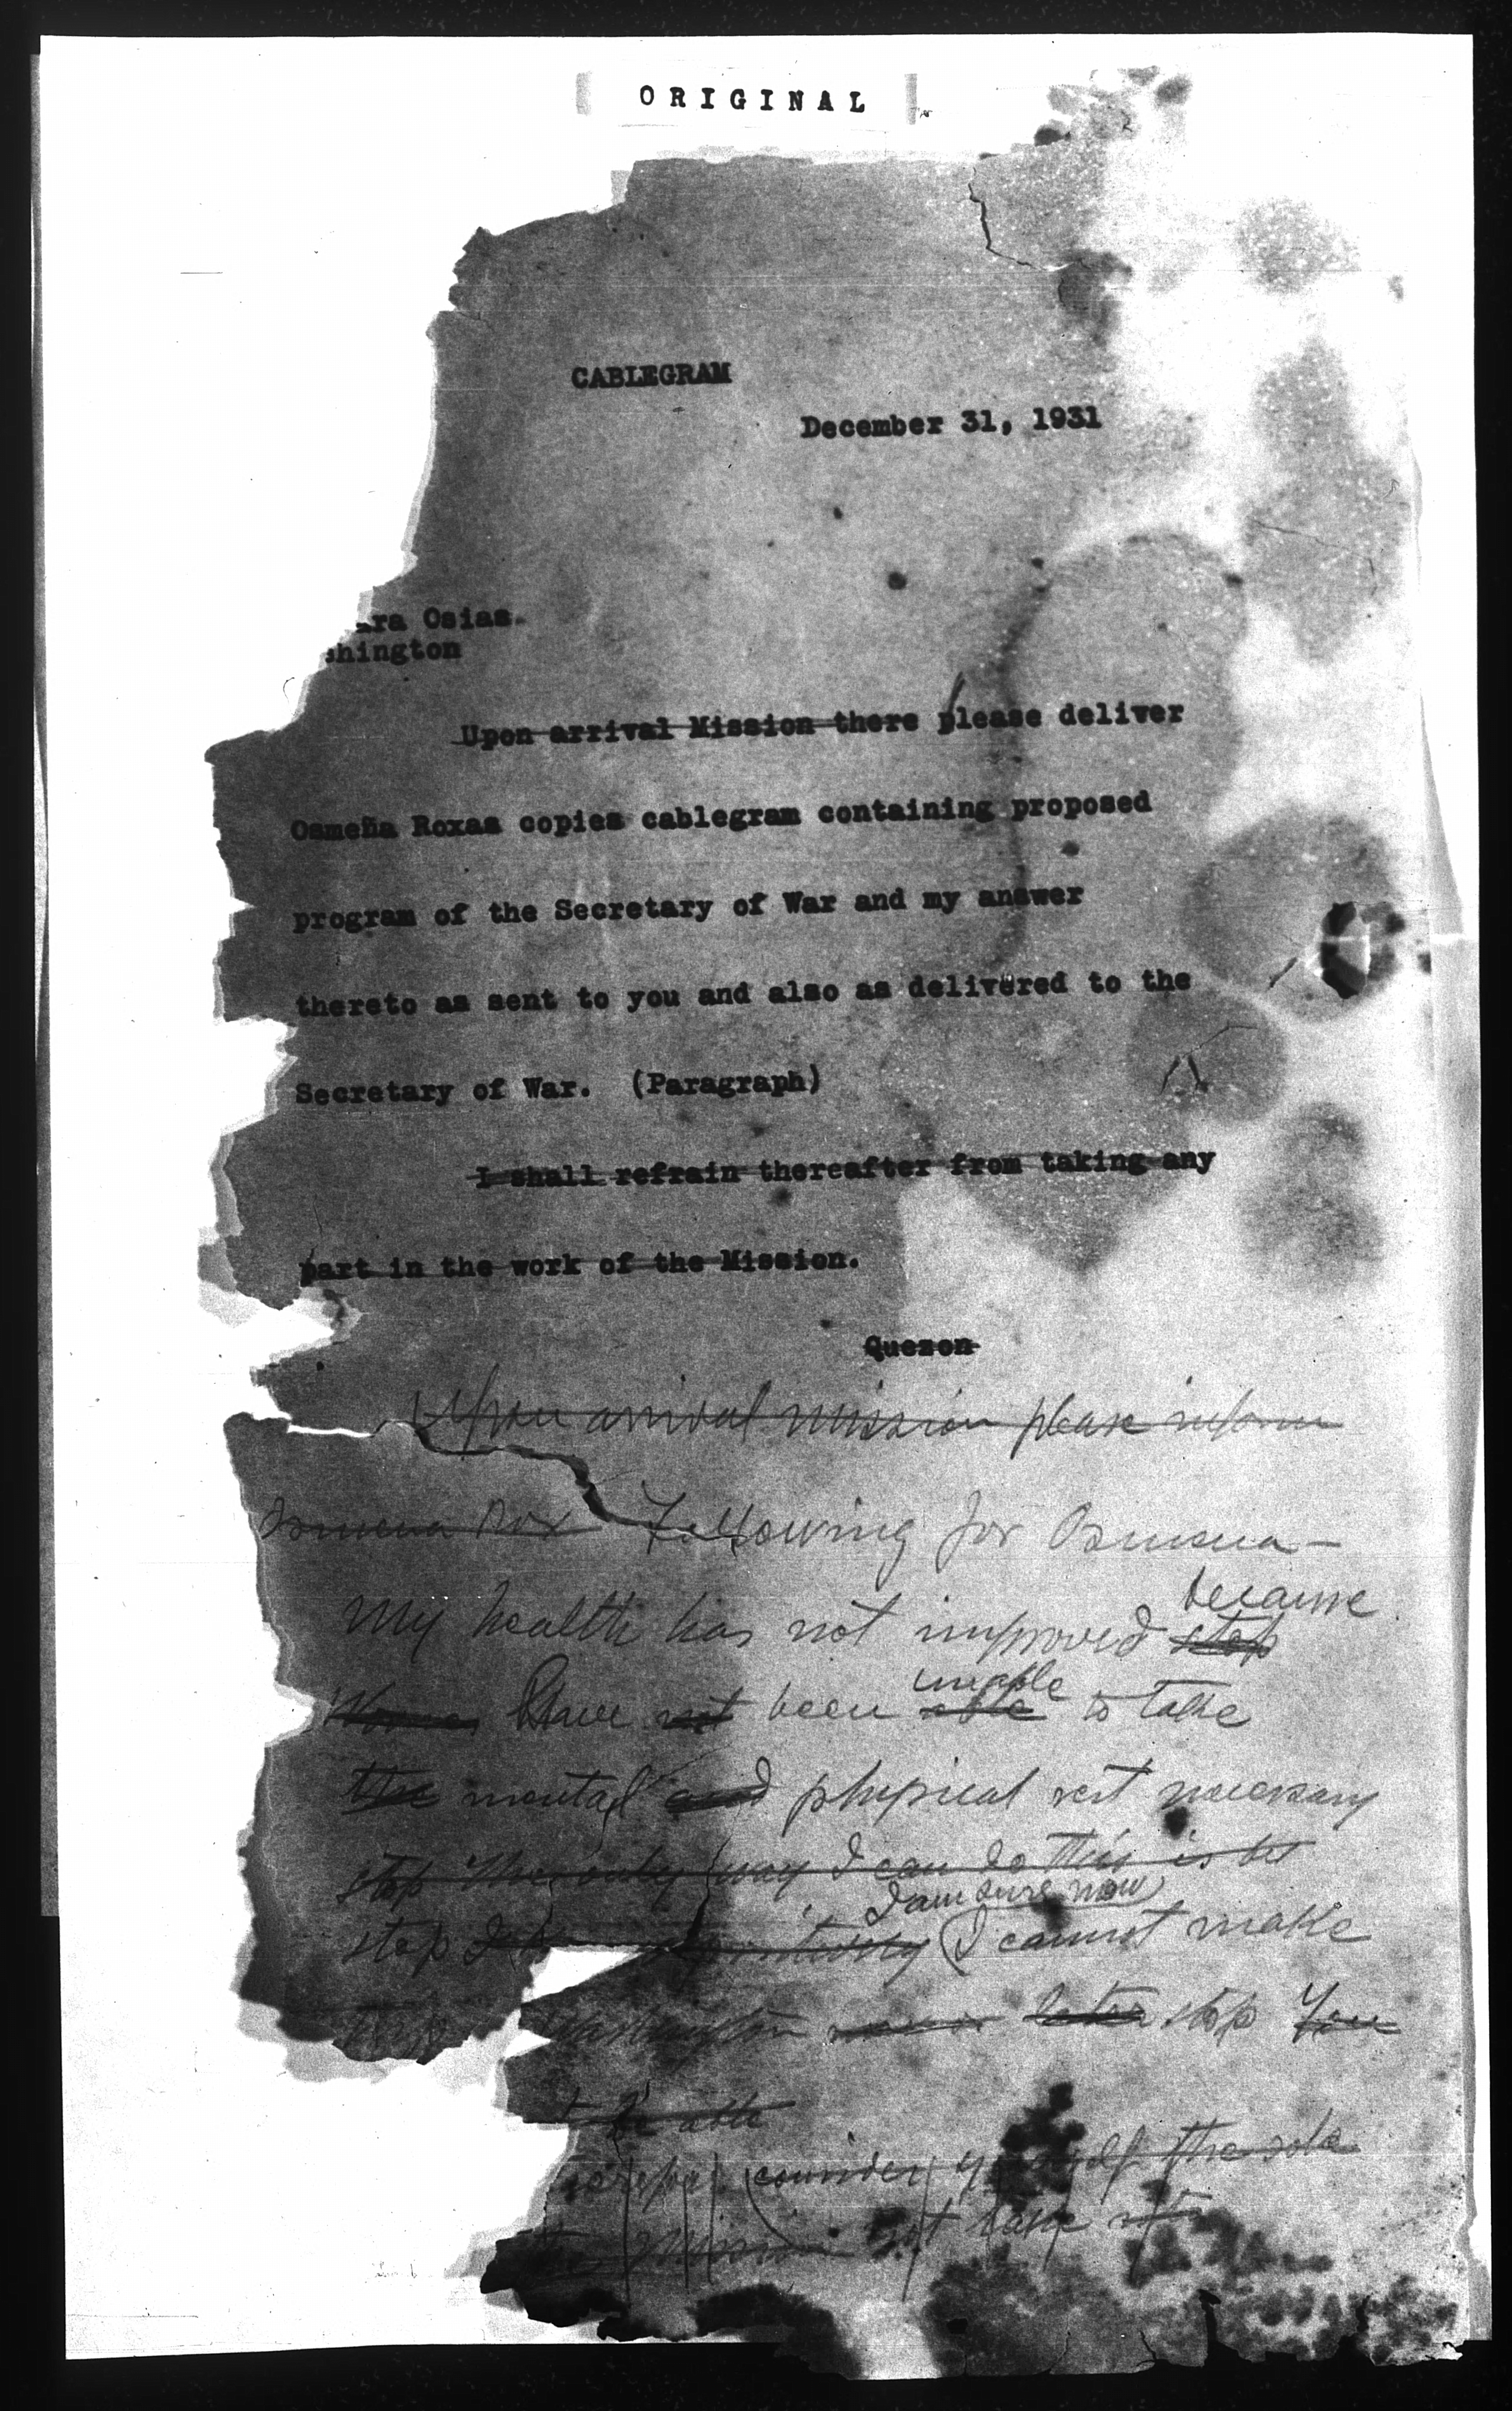 ORIGINAL
CABLEGRAM
December 31, 1931
ra Osias.
shington
Upon arrival Mission there please deliver
Osmeña Roxas copies cablegram containing proposed
program of the Secretary of War and my answer
thereto as sent to you and also as delivered to the
Secretary of War. (Paragraph)
I shall refrain thereafter from taking any
part in the work of the Mission.
Quezon
Upon arrival mission please inform
Osmena Rox Following for Osmena -
because
My health has not improved stop
unable
Have not been able to take
the mental and physical rest necessary
stop The only way I can do this is to
I am sure now
stop I cannot make
trip Washington later stop You
be able
consider yourself the sole
the Mission but take